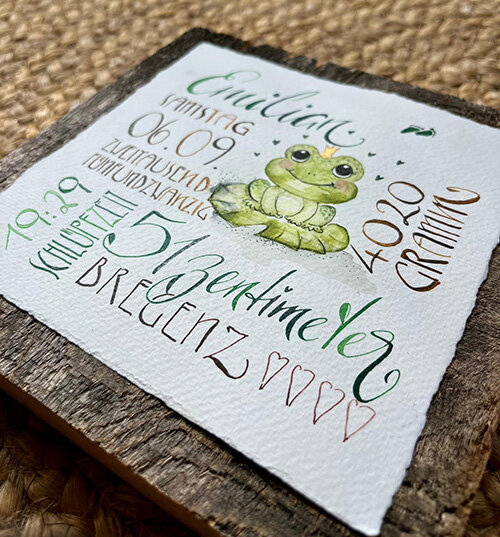 Emilian
SAMSTAG
06.09.
ZWEITAUSEND
FÜNFUNDZWANZIG
4020
GRAMM
19:29
SCHLÜPFZEIT
51 Zentimeter
BREGENZ